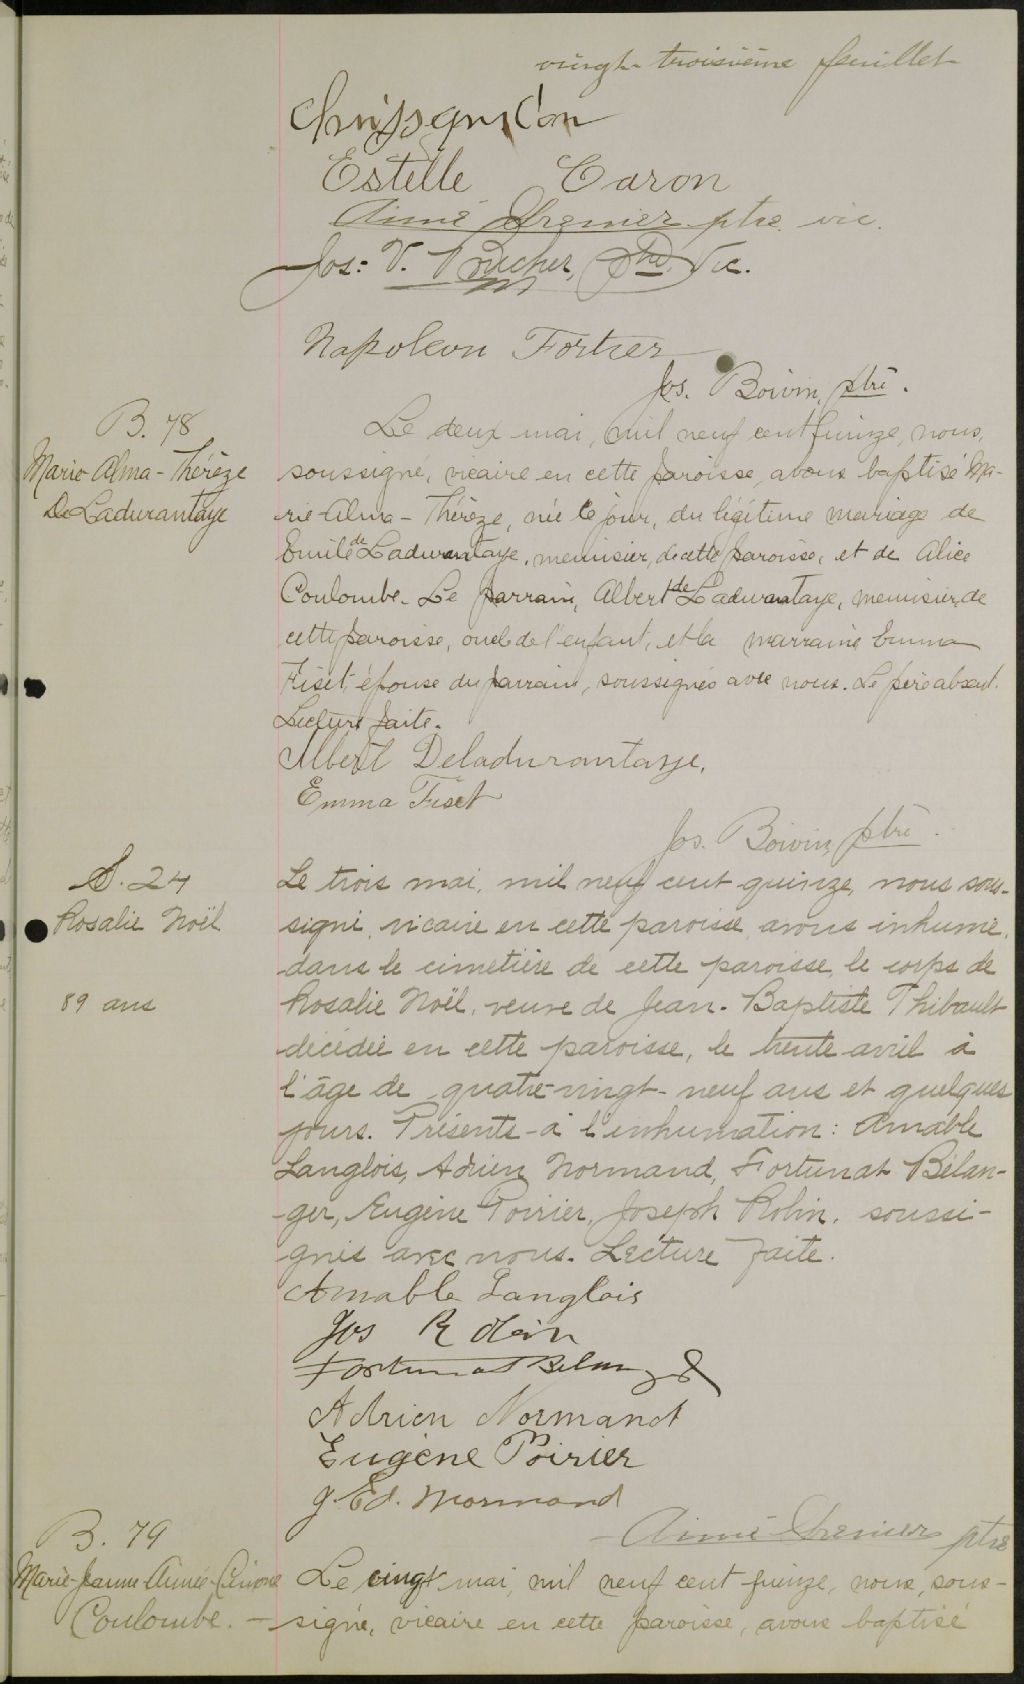 vingt-troisième feuillet
Estelle Caron
Aimé Grenier ptre. vic.
Jos: V. Vic.
Napoleon Fortier
Jos. Boivin, ptre.
B. 78
Marie Alma-Thérèze
DeLadurantaye
Le deux mai, mil neuf cent quinze, nous,
soussigné, vicaire en cette paroisse, avons baptisé Ma-
rie-Alma-Thérèze, née le jour, du légitime mariage de
Emile de Ladurantaye, menuisier, de cette paroisse, et de Alice
Coulombe. Le parrain, Albert de Ladurantaye, menuisier, de
cette paroisse, oncle de l'enfant, et la marraine Emma
Fiset, épouse du parrain, soussignés avec nous. Le père absent.
Lecture faite.
Albert Deladurantaye,
Emma Fiset
Jos. Boivin, ptre.
S. 24
Rosalie Noël
89 ans
Le trois mai, mil neuf cent quinze, nous sous-
signé, vicaire en cette paroisse, avons inhumé,
dans le cimetière de cette paroisse, le corps de
Rosalie Noël, veuve de Jean-Baptiste Thibault
décédée en cette paroisse, le trente avril à
l'âge de quatre-vingt-neuf ans et quelques
jours. Présents à l'inhumation: Amable
Langlois, Adrien Normand, Fortunat Bélan-
ger, Eugène Poirier, Joseph Robin, soussi-
gnés avec nous. Lecture faite.
Amable Langlois
Jos Robin
Fortunat Belanger
Adrien Normand
Eugène Poirier
J. Ed. Normand
Aimé Grenier ptre
B. 79
Marie-Jeanne Aimée
Coulombe.
Le cinq mai, mil neuf cent quinze, nous, sous-
signé, vicaire en cette paroisse, avons baptisé